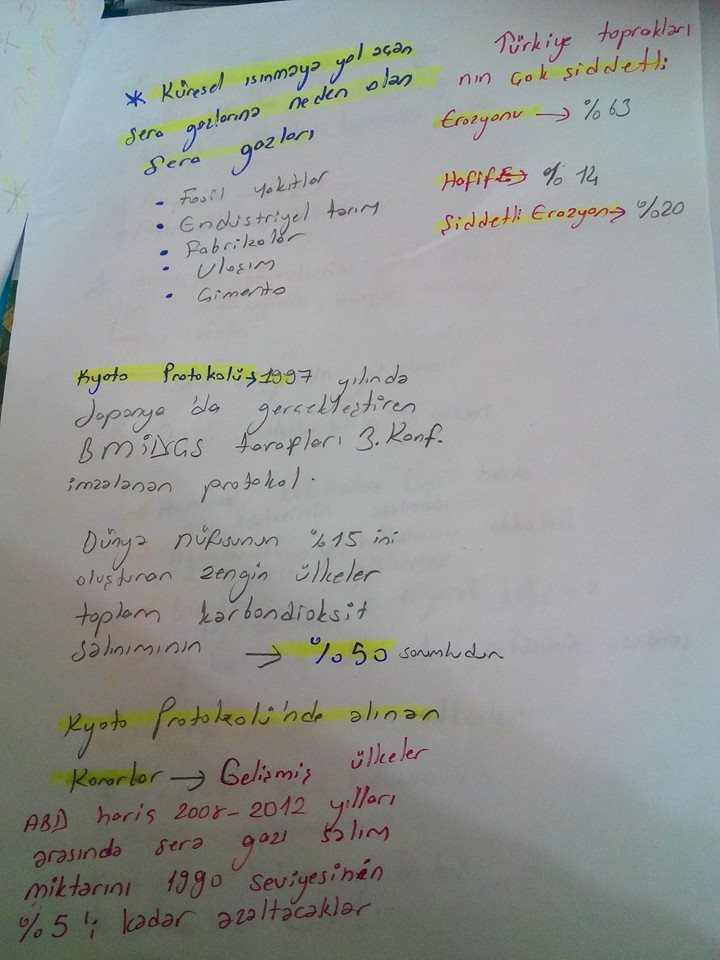 * Küresel ısınmaya yol açan
sera gazlarına neden olan
sera gazları
• Fosil yakıtlar
• Endüstriyel tarım
• Fabrikalar
• Ulaşım
• Çimento
Türkiye toprakları
nın çok şiddetli
Erozyonu → %63
Hafif → % 14
Şiddetli Erozyon → %20
Kyoto Protokolü → 1997 yılında
Japonya'da gerçekleştiren
BMİDÇS tarafları 3. Konf.
imzalanan protokol.
Dünya nüfusunun %15 ini
oluşturan zengin ülkeler
toplam karbondioksit
salınımının → %50 sorumludur
Kyoto Protokolü'nde alınan
Kararlar → Gelişmiş ülkeler
ABD hariç 2008-2012 yılları
arasında sera gazı salım
miktarını 1990 seviyesinin
%5'i kadar azaltacaklar